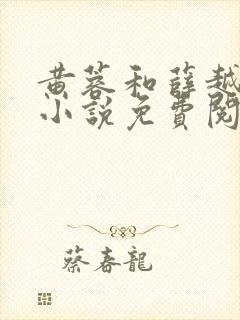 黄蓉和薛越
小说免費閱
蔡春龍